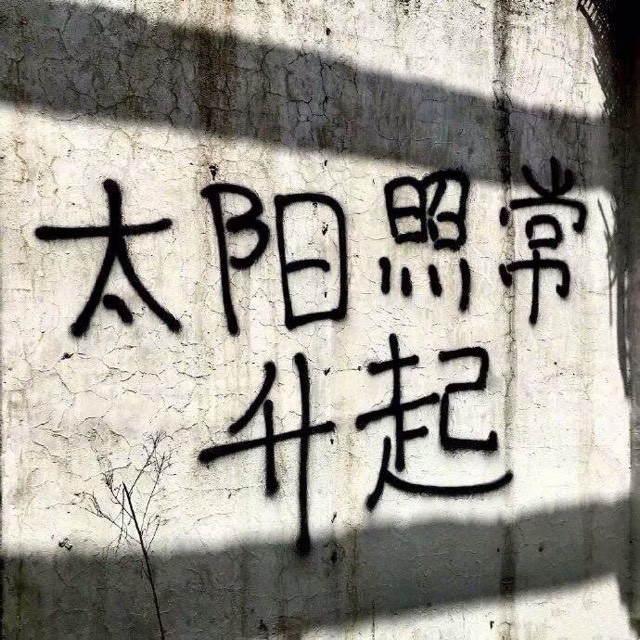 太阳照常
升起